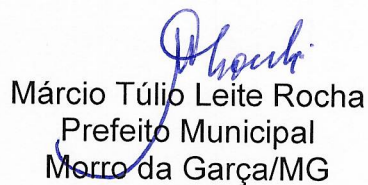 Márcio Túlio Leite Rocha
Prefeito Municipal
Morro da Garça/MG